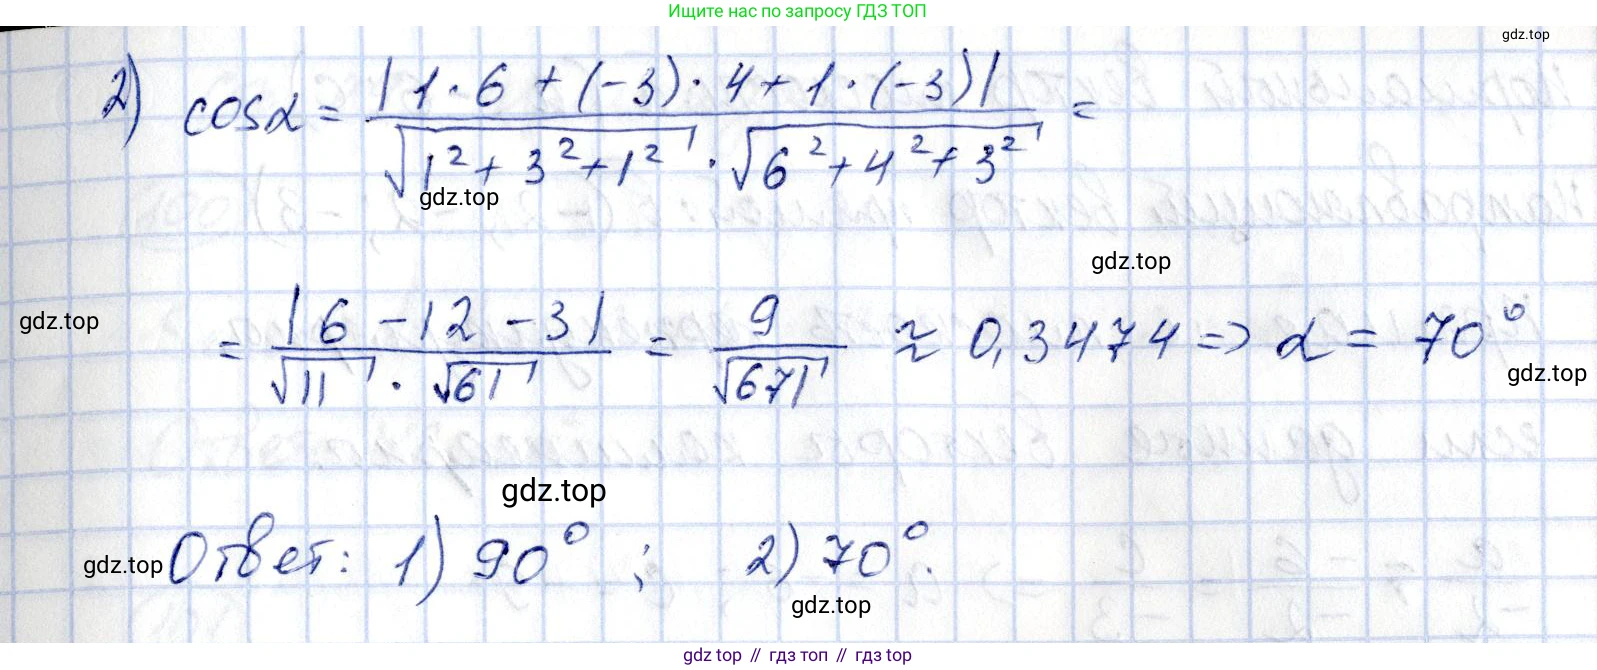 Ищите нас по запросу ГДЗ ТОП
gdz.top
2) cosα = |1·6 + (-3)·4 + 1·(-3)| / √(1² + 3² + 1²) · √(6² + 4² + 3²) =
gdz.top
gdz.top
= |6 - 12 - 3| / √11 · √61 = 9 / √671 ≈ 0,3474 => α = 70°
gdz.top
gdz.top
gdz.top
Ответ: 1) 90° ; 2) 70°.
gdz.top
gdz.top
gdz top // гдз топ // гдз top